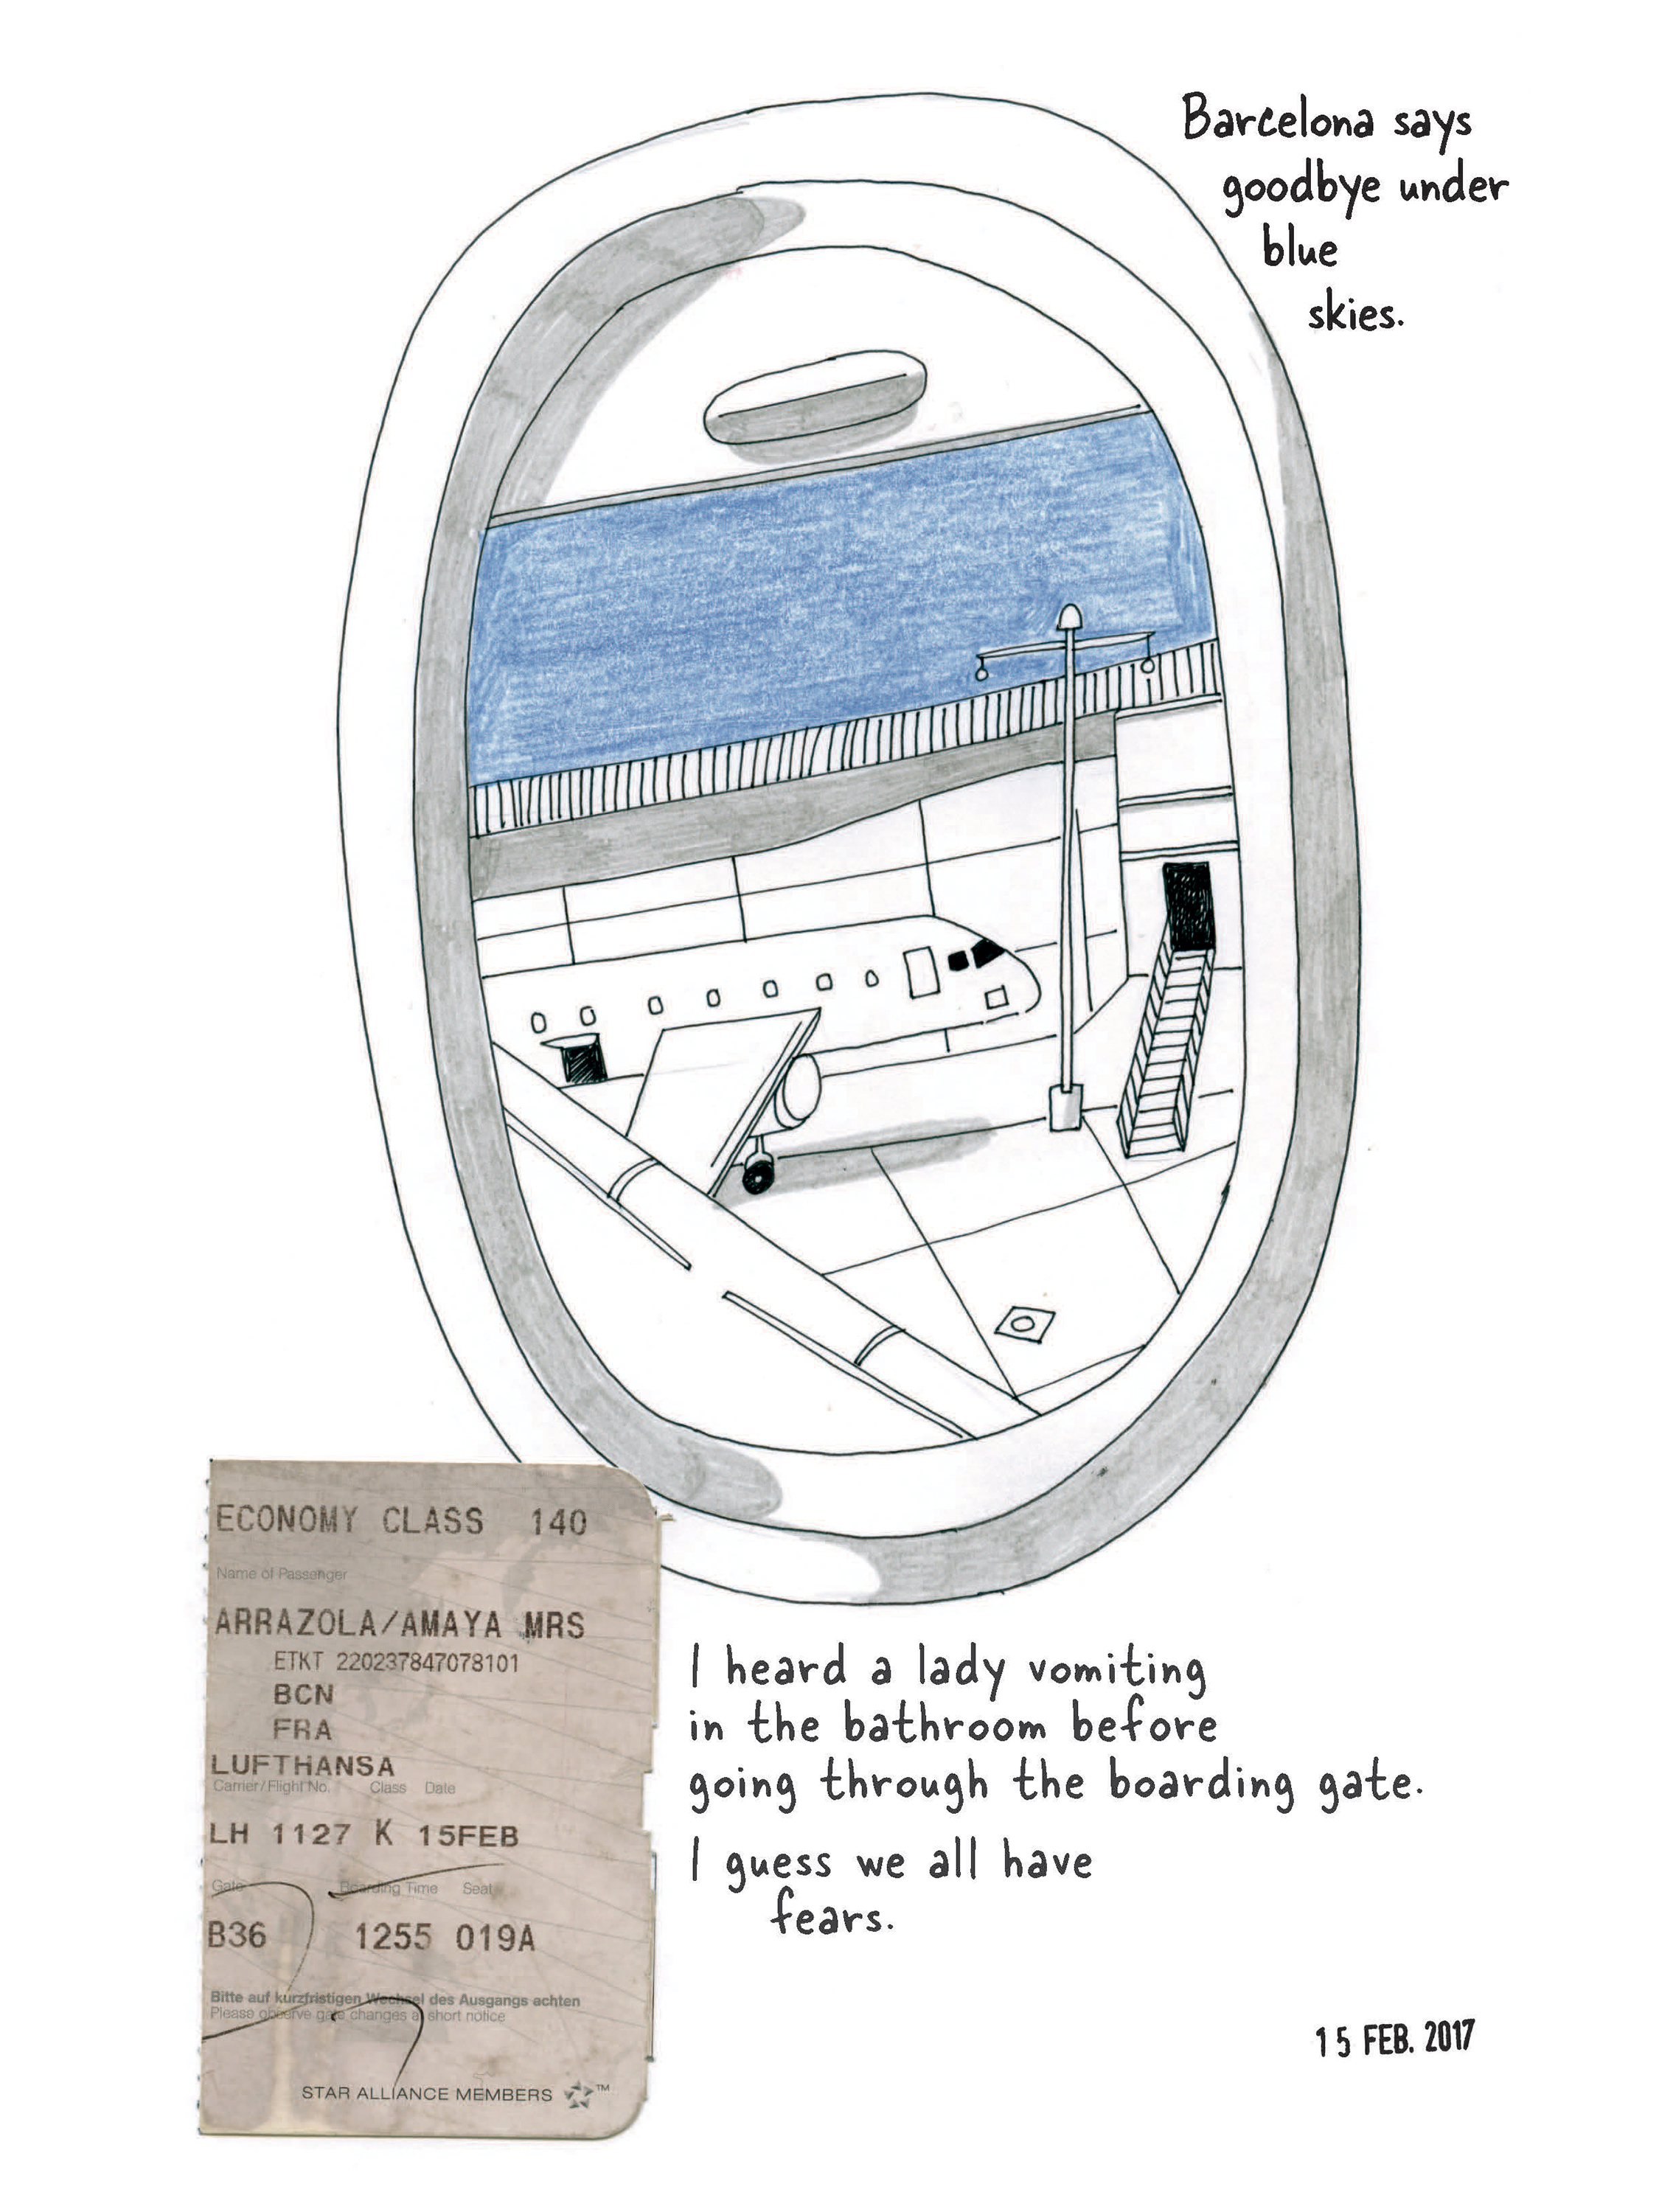 Barcelona says
goodbye under
blue
skies.
ECONOMY CLASS 140
Name of Passenger
ARRAZOLA/AMAYA MRS
ETKT 220237847078101
BCN
FRA
LUFTHANSA
Carrier/Flight No. Class Date
LH 1127 K 15FEB
Gate Boarding Time Seat
B36 1255 019A
Bitte auf kurzfristigen Wechsel des Ausgangs achten
Please observe gate changes at short notice
STAR ALLIANCE MEMBERS ™
I heard a lady vomiting
in the bathroom before
going through the boarding gate.
I guess we all have
fears.
15 FEB. 2017